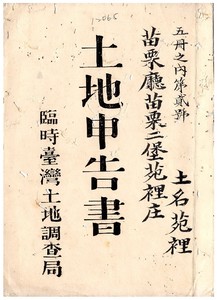 12065
五冊之內第貳號
苗栗廳苗栗二堡苑裡庄
土名苑裡
土地申告書
臨時臺灣土地調查局